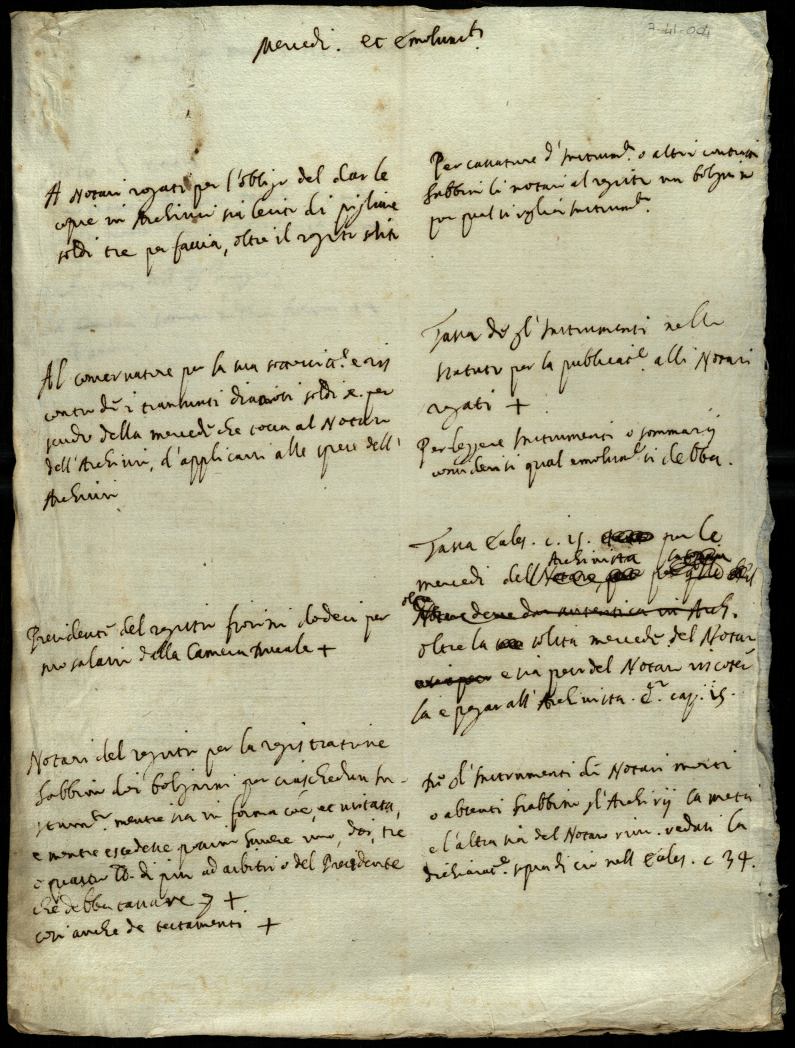 Mercedi. et Emolumti
7-41-004
A Notari rogati per l'obligo del dar le
copie in Archivio sia lecito di pigliare
soldi tre per faccia, oltre il registro soliti
Al conservatore per la sua e ris
contro de i transunti soldi x. per
scudo della mercede che tocca al Notaro
dell'Archivio, d'applicarsi alle spese dell'
Archivio
Presidente del registro fiorini dodeci per
suo salario dalla Camera Ducale +
Notari del registro per la registratione
habbino doi bolognini per ciaschedun In-
strumto. mentre sia in forma et
e mentre eccedesse possino havere uno, doi, tre
o quattro di più ad arbitrio del Presidente
che debba tassare +
così anche de testamenti +
Per cassature d'Instrumti. o altri contratti
habbino li notari al registro un bolognino
per qual si voglia Instrumto.
Tassa de gl'Instrumenti nello
statuto per la publicate. alli Notari
rogati +
Per leggere Instrumenti o sommarij
consideri si qual emolumto si debba.
Tassa Eccles. c. 15. per le
mercedi dell' Archivista
oltre la solita mercede del Notaro
e sia peso del Notaro riscoter
la e pagar all'Archivista. cap. 15.
gl'Instrumenti di Notari morti
o absenti habbino gl'Archivij la metà
e l'altra sia del Notaro vedasi la
dichiarate. sopra di ciò nell Eccles. c 34.